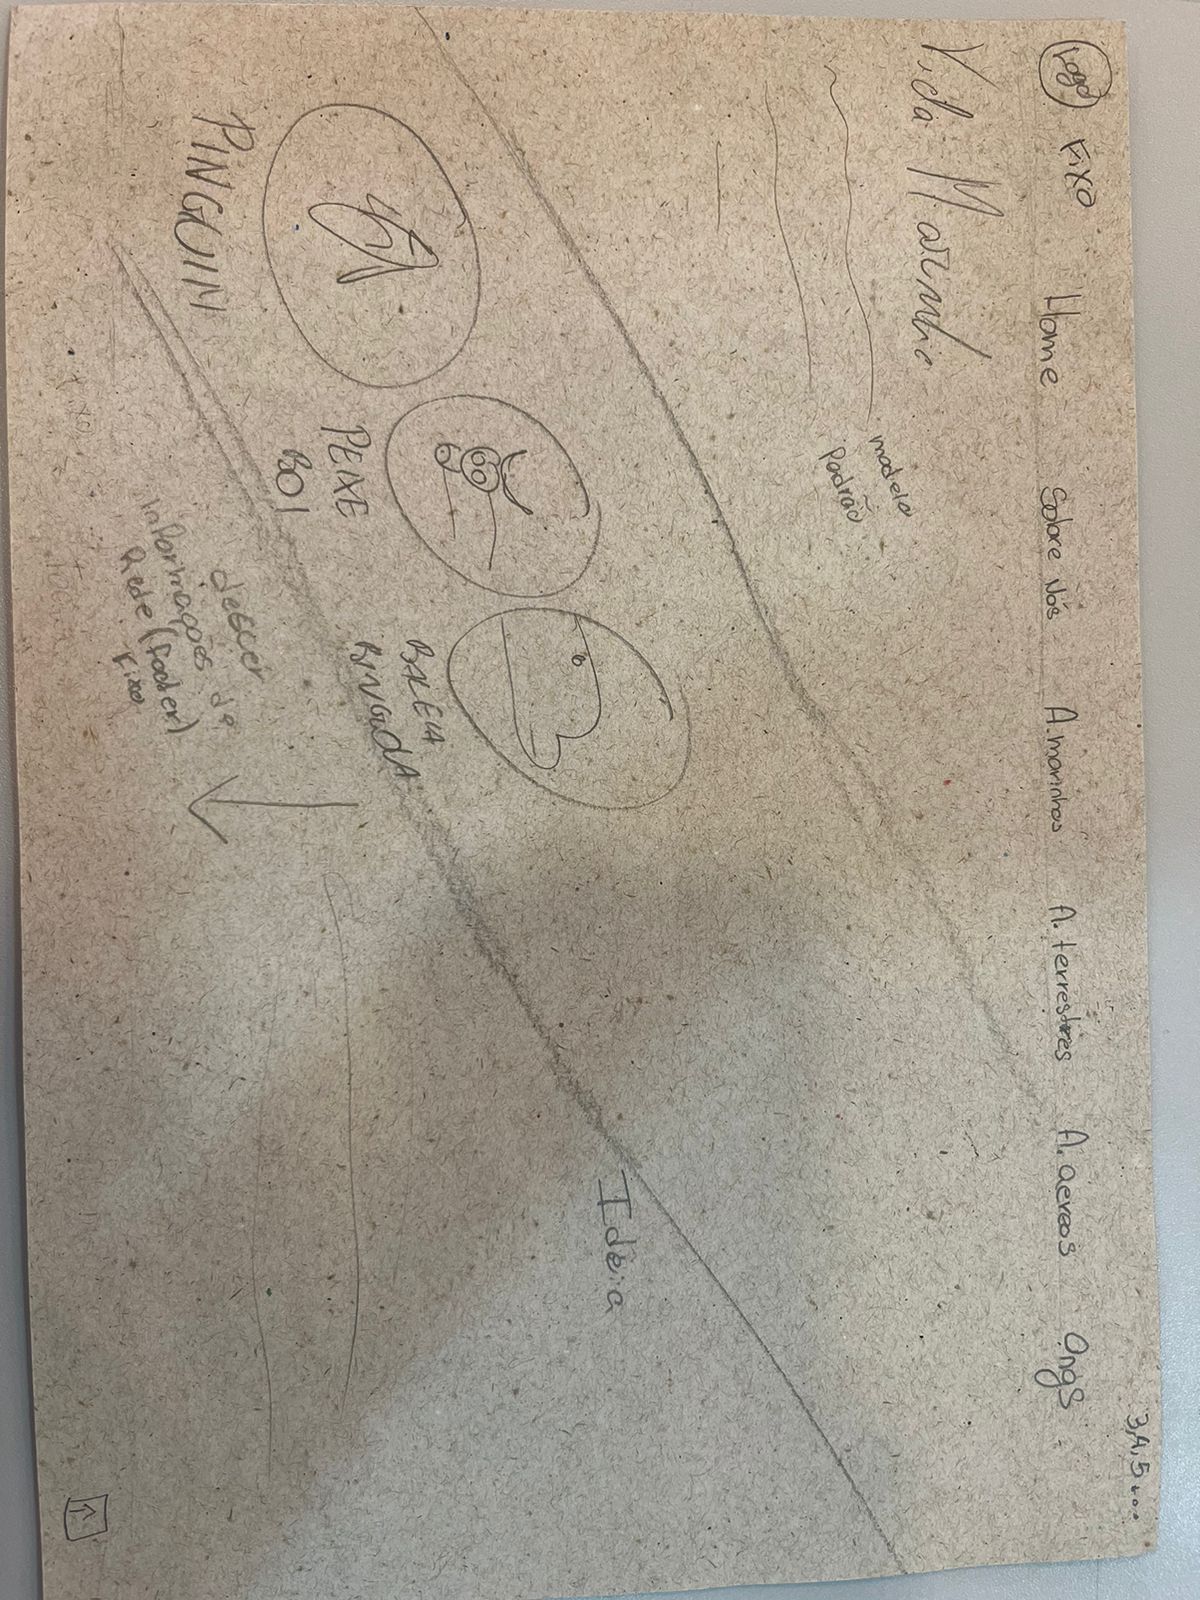 3,4,5...
Logo Fixo Home Sobre Nós A.marinhos A. terrestres A. aereos Ongs
Vida Marinha
modelo
Padrão
Idéia
BALEIA
BINGOLA
PEIXE
BOI
PINGUIM
descer
informações de
Rede (footer)
Fixo